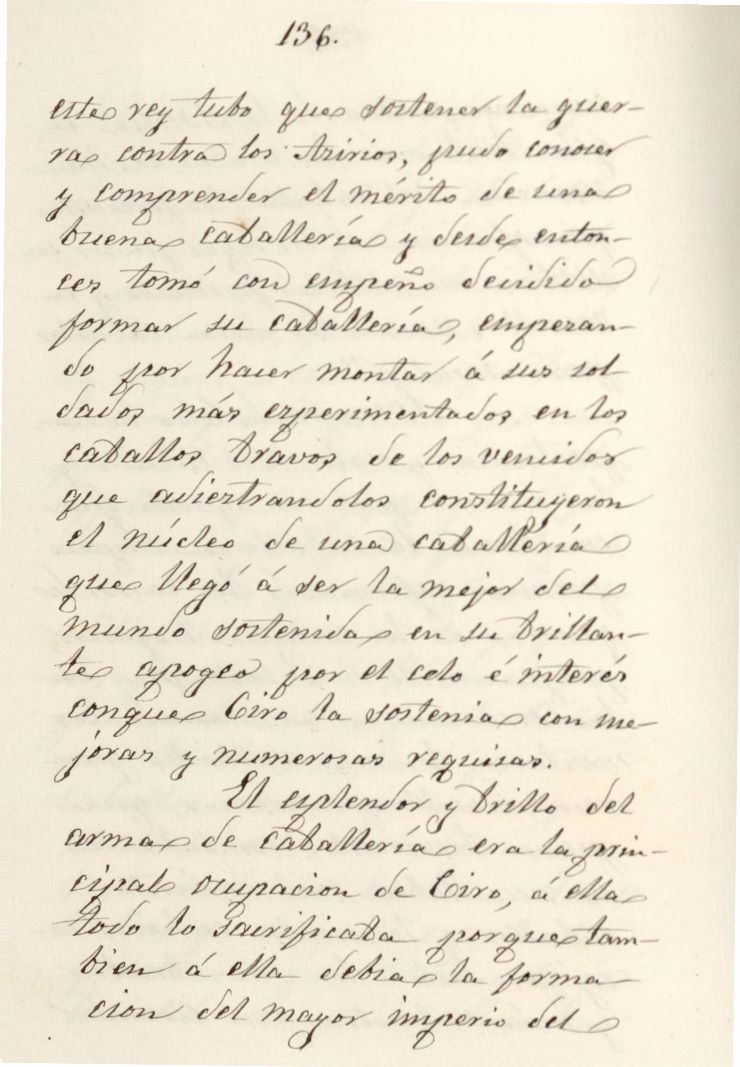 136.
este rey tubo que sostener la guer-
ra contra los Asirios, pudo conocer
y comprender el mérito de una
buena caballería y desde enton-
ces tomó con empeño decidido
formar su caballería, empezan-
do por hacer montar á sus sol-
dados más experimentados en los
caballos bravos de los vencidos
que adiestrandolos constituyeron
el núcleo de una caballería
que llegó á ser la mejor del
mundo sostenida en su brillan-
te apogeo por el celo é interés
conque Ciro la sostenia con me-
joras y numerosas requisas.
El esplendor y brillo del
arma de caballería era la prin-
cipal ocupacion de Ciro, á ella
todo lo sacrificaba porque tam-
bien á ella debia la forma
cion del mayor imperio del